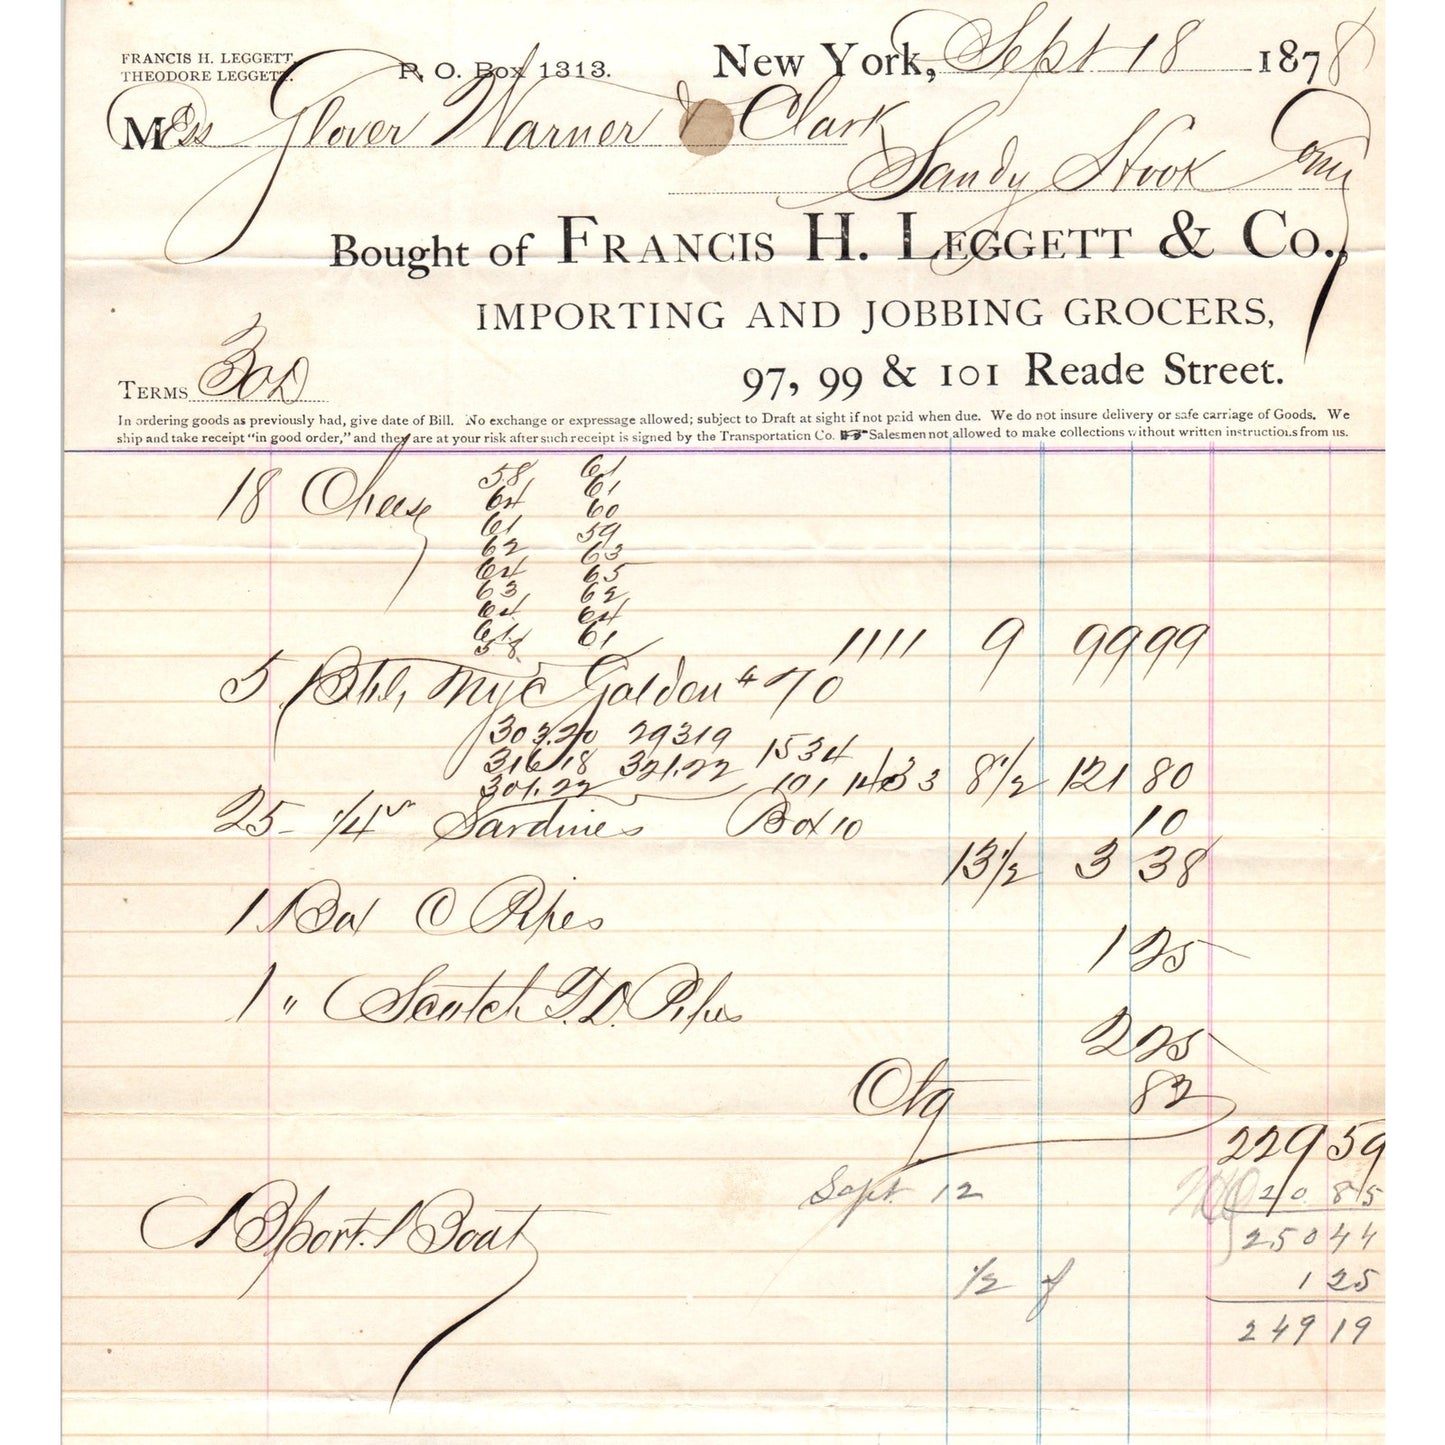 FRANCIS H. LEGGETT,
THEODORE LEGGETT.
P. O. Box 1313.
New York, Sept 18 1878
Mess Glover Warner & Clark
Sandy Hook Conn
Bought of FRANCIS H. LEGGETT & Co.,
IMPORTING AND JOBBING GROCERS,
97, 99 & 101 Reade Street.
TERMS 30 D
In ordering goods as previously had, give date of Bill. No exchange or expressage allowed; subject to Draft at sight if not paid when due. We do not insure delivery or safe carriage of Goods. We
ship and take receipt "in good order," and they are at your risk after such receipt is signed by the Transportation Co. ☞ Salesmen not allowed to make collections without written instructions from us.
18 Cheese 58 61
64 61
61 60
62 59
64 63
63 65
64 62
61 64
58 61 1111 9 99 99
5 Bbls NYC Golden # 70
303.20 293 19
316 18 321.22 1534
301.22 101 1433 8 1/2 121 80
25 1/4s Sardines Box 10 10
13 1/2 3 38
1 Box O Pipes
1 25
1 " Scotch T.D. Pipes
2 25
Ctg 82
229 59
Sept. 12 20 85
250 44
1/2 1 25
249 19
Bport. Boat